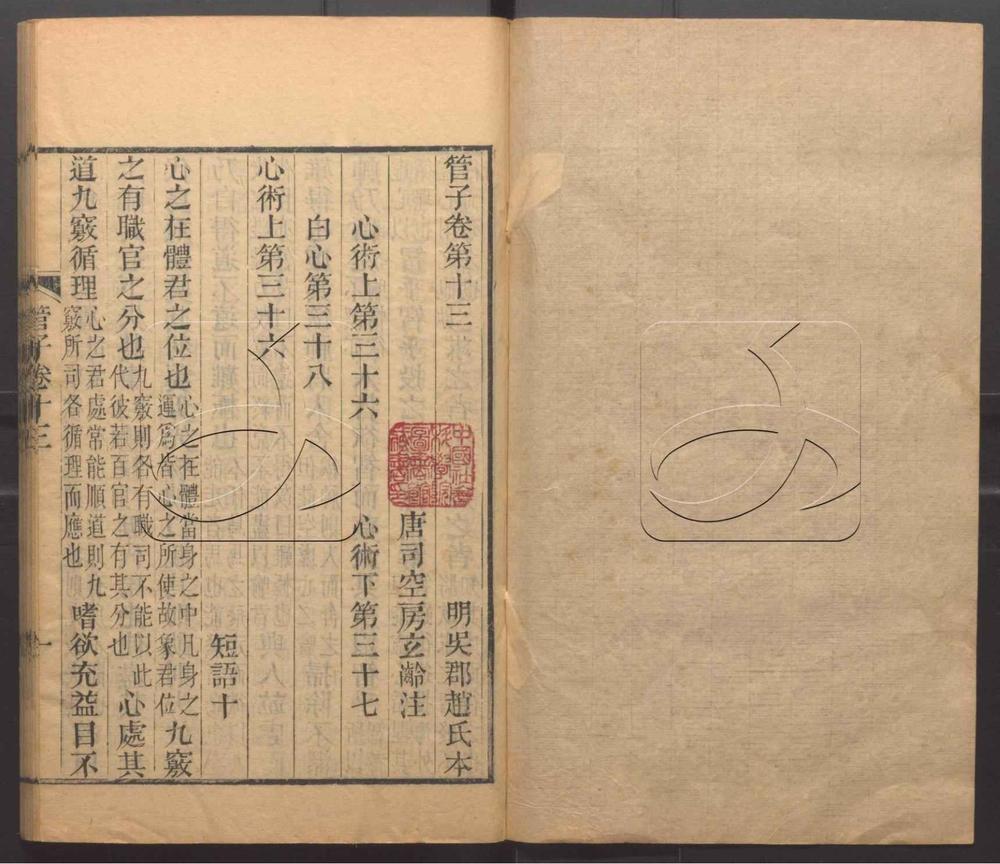 管子卷第十三
明吳郡趙氏本
唐司空房玄齡注
心術上第三十六
心術下第三十七
白心第三十八
心術上第三十六
短語十
心之在體君之位也心之在體當身之中凡身之運爲皆心之所使故象君位九竅
之有職官之分也九竅則各有職司不能以此代彼若百官之有其分也心處其
道九竅循理心之君處常能順道則九竅所司各循理而應也嗜欲充益目不
管子卷十三
一